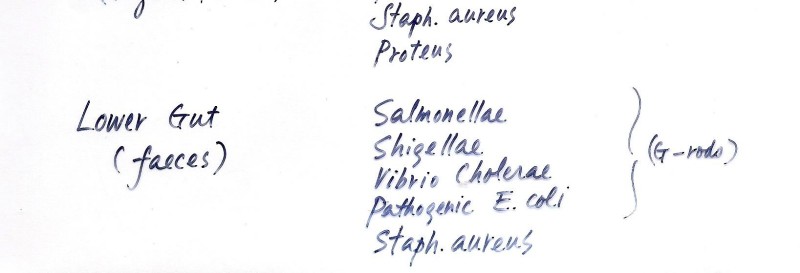 Staph. aureus
Proteus
Lower Gut
(faeces)
Salmonellae
Shigellae
Vibrio Cholerae
Pathogenic E. coli
(G-rods)
Staph. aureus